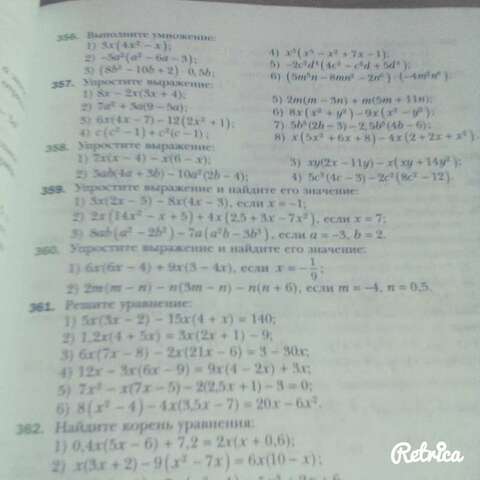 356. Выполните умножение:
1) 3x(4x² − x);
4) x³(x⁵ − x² + 7x − 1);
2) −5a²(a² − 6a − 3);
5) −2c²d⁴(4c² − c³d + 5d⁴);
3) (8b² − 10b + 2) · 0,5b;
6) (5m³n − 8mn² − 2n⁶) · (−4m²n⁸).
357. Упростите выражение:
1) 8x − 2x(3x + 4);
5) 2m(m − 3n) + m(5m + 11n);
2) 7a² + 3a(9 − 5a);
6) 8x(x² + y²) − 9x(x² − y²);
3) 6x(4x − 7) − 12(2x² + 1);
7) 5b³(2b − 3) − 2,5b³(4b − 6);
4) c(c² − 1) + c²(c − 1);
8) x(5x² + 6x + 8) − 4x(2 + 2x + x²).
358. Упростите выражение:
1) 7x(x − 4) − x(6 − x);
3) xy(2x − 11y) − x(xy + 14y²);
2) 5ab(4a + 3b) − 10a²(2b − 4);
4) 5c³(4c − 3) − 2c²(8c² − 12).
359. Упростите выражение и найдите его значение:
1) 3x(2x − 5) − 8x(4x − 3), если x = −1;
2) 2x(14x² − x + 5) + 4x(2,5 + 3x − 7x²), если x = 7;
3) 8ab(a² − 2b²) − 7a(a²b − 3b³), если a = −3, b = 2.
360. Упростите выражение и найдите его значение:
1) 6x(6x − 4) + 9x(3 − 4x), если x = −1/9;
2) 2m(m − n) − n(3m − n) − n(n + 6), если m = −4, n = 0,5.
361. Решите уравнение:
1) 5x(3x − 2) − 15x(4 + x) = 140;
2) 1,2x(4 + 5x) = 3x(2x + 1) − 9;
3) 6x(7x − 8) − 2x(21x − 6) = 3 − 30x;
4) 12x − 3x(6x − 9) = 9x(4 − 2x) + 3x;
5) 7x² − x(7x − 5) − 2(2,5x + 1) − 3 = 0;
6) 8(x² − 4) − 4x(3,5x − 7) = 20x − 6x².
362. Найдите корень уравнения:
1) 0,4x(5x − 6) + 7,2 = 2x(x + 0,6);
2) x(3x + 2) − 9(x² − 7x) = 6x(10 − x);
Retrica